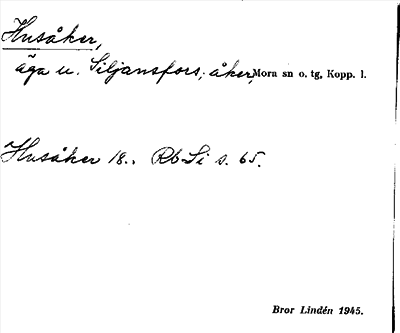 Husåker,
äga u. Siljansfors; åker, Mora sn o. tg, Kopp. l.
Husåker 18.. Rb Si s. 65.
Bror Lindén 1945.